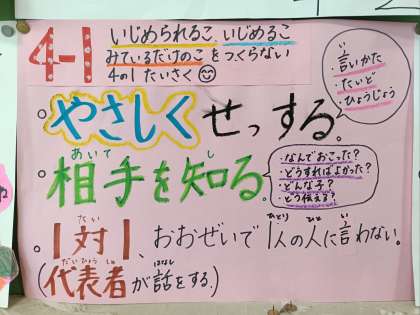 4-1
いじめられるこ、いじめるこ
みているだけのこをつくらない
4の1 たいさく
。やさしくせっする。
・言いかた
・たいど
・ひょうじょう
。相手を知る。
・なんでおこった?
・どうすればよかった?
・どんな子?
・どう伝える?
。1対1、おおぜいで1人の人に言わない。
(代表者が話をする。)